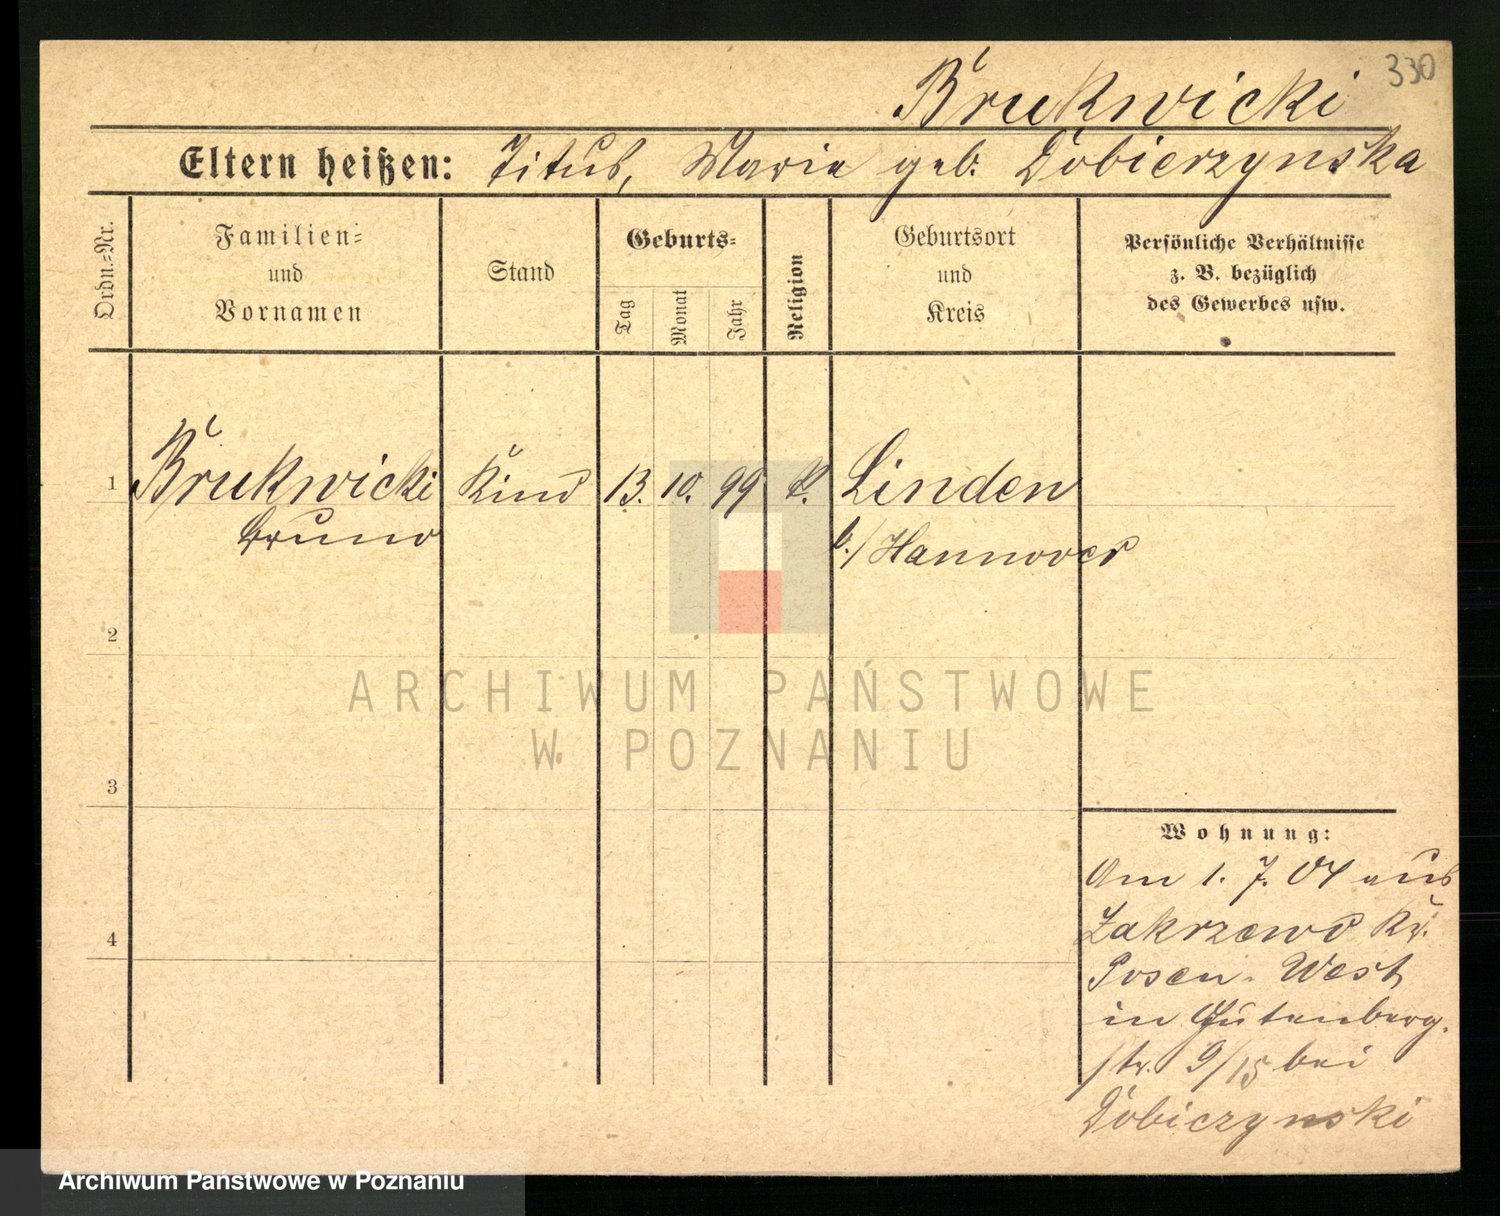 330
Brukwicki
Eltern heißen: Titus, Maria geb. Dobierzynska
Ordn.-Nr.
Familien-
und
Vornamen
Stand
Geburts-
Tag
Monat
Jahr
Religion
Geburtsort
und
Kreis
Persönliche Verhältnisse
z. B. bezüglich
des Gewerbes usw.
1 Brukwicki Kind 13. 10. 99 k. Linden
Bruno b./Hannover
2
ARCHIWUM PAŃSTWOWE
W POZNANIU
3
Wohnung:
Am 1. 7. 04 aus
Zakrzewo Kr.
4
Posen-West
in Gutenberg-
str. 9/15 bei
Dobiczynski
Archiwum Państwowe w Poznaniu